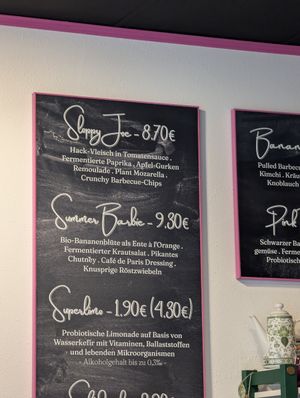 Sloppy Joe - 8.70€
Hack-Vleisch in Tomatensauce .
Fermentierte Paprika . Apfel-Gurken
Remoulade . Plant Mozarella .
Crunchy Barbecue-Chips
Summer Barbie - 9.30€
Bio-Bananenblüte als Ente à l'Orange .
Fermentierter Krautsalat . Pikantes
Chutnby . Café de Paris Dressing .
Knusprige Röstzwiebeln
Superlimo - 1.90€ (4.30€)
Probiotische Limonade auf Basis von
Wasserkefir mit Vitaminen, Ballaststoffen
und lebenden Mikroorganismen
- Alkoholgehalt bis zu 0.3%
Banan
Pulled Barbec
Kimchi . Kräu
Knoblauch
Pink
Schwarzer Ba
gemüse . Ferme
Probiotisch